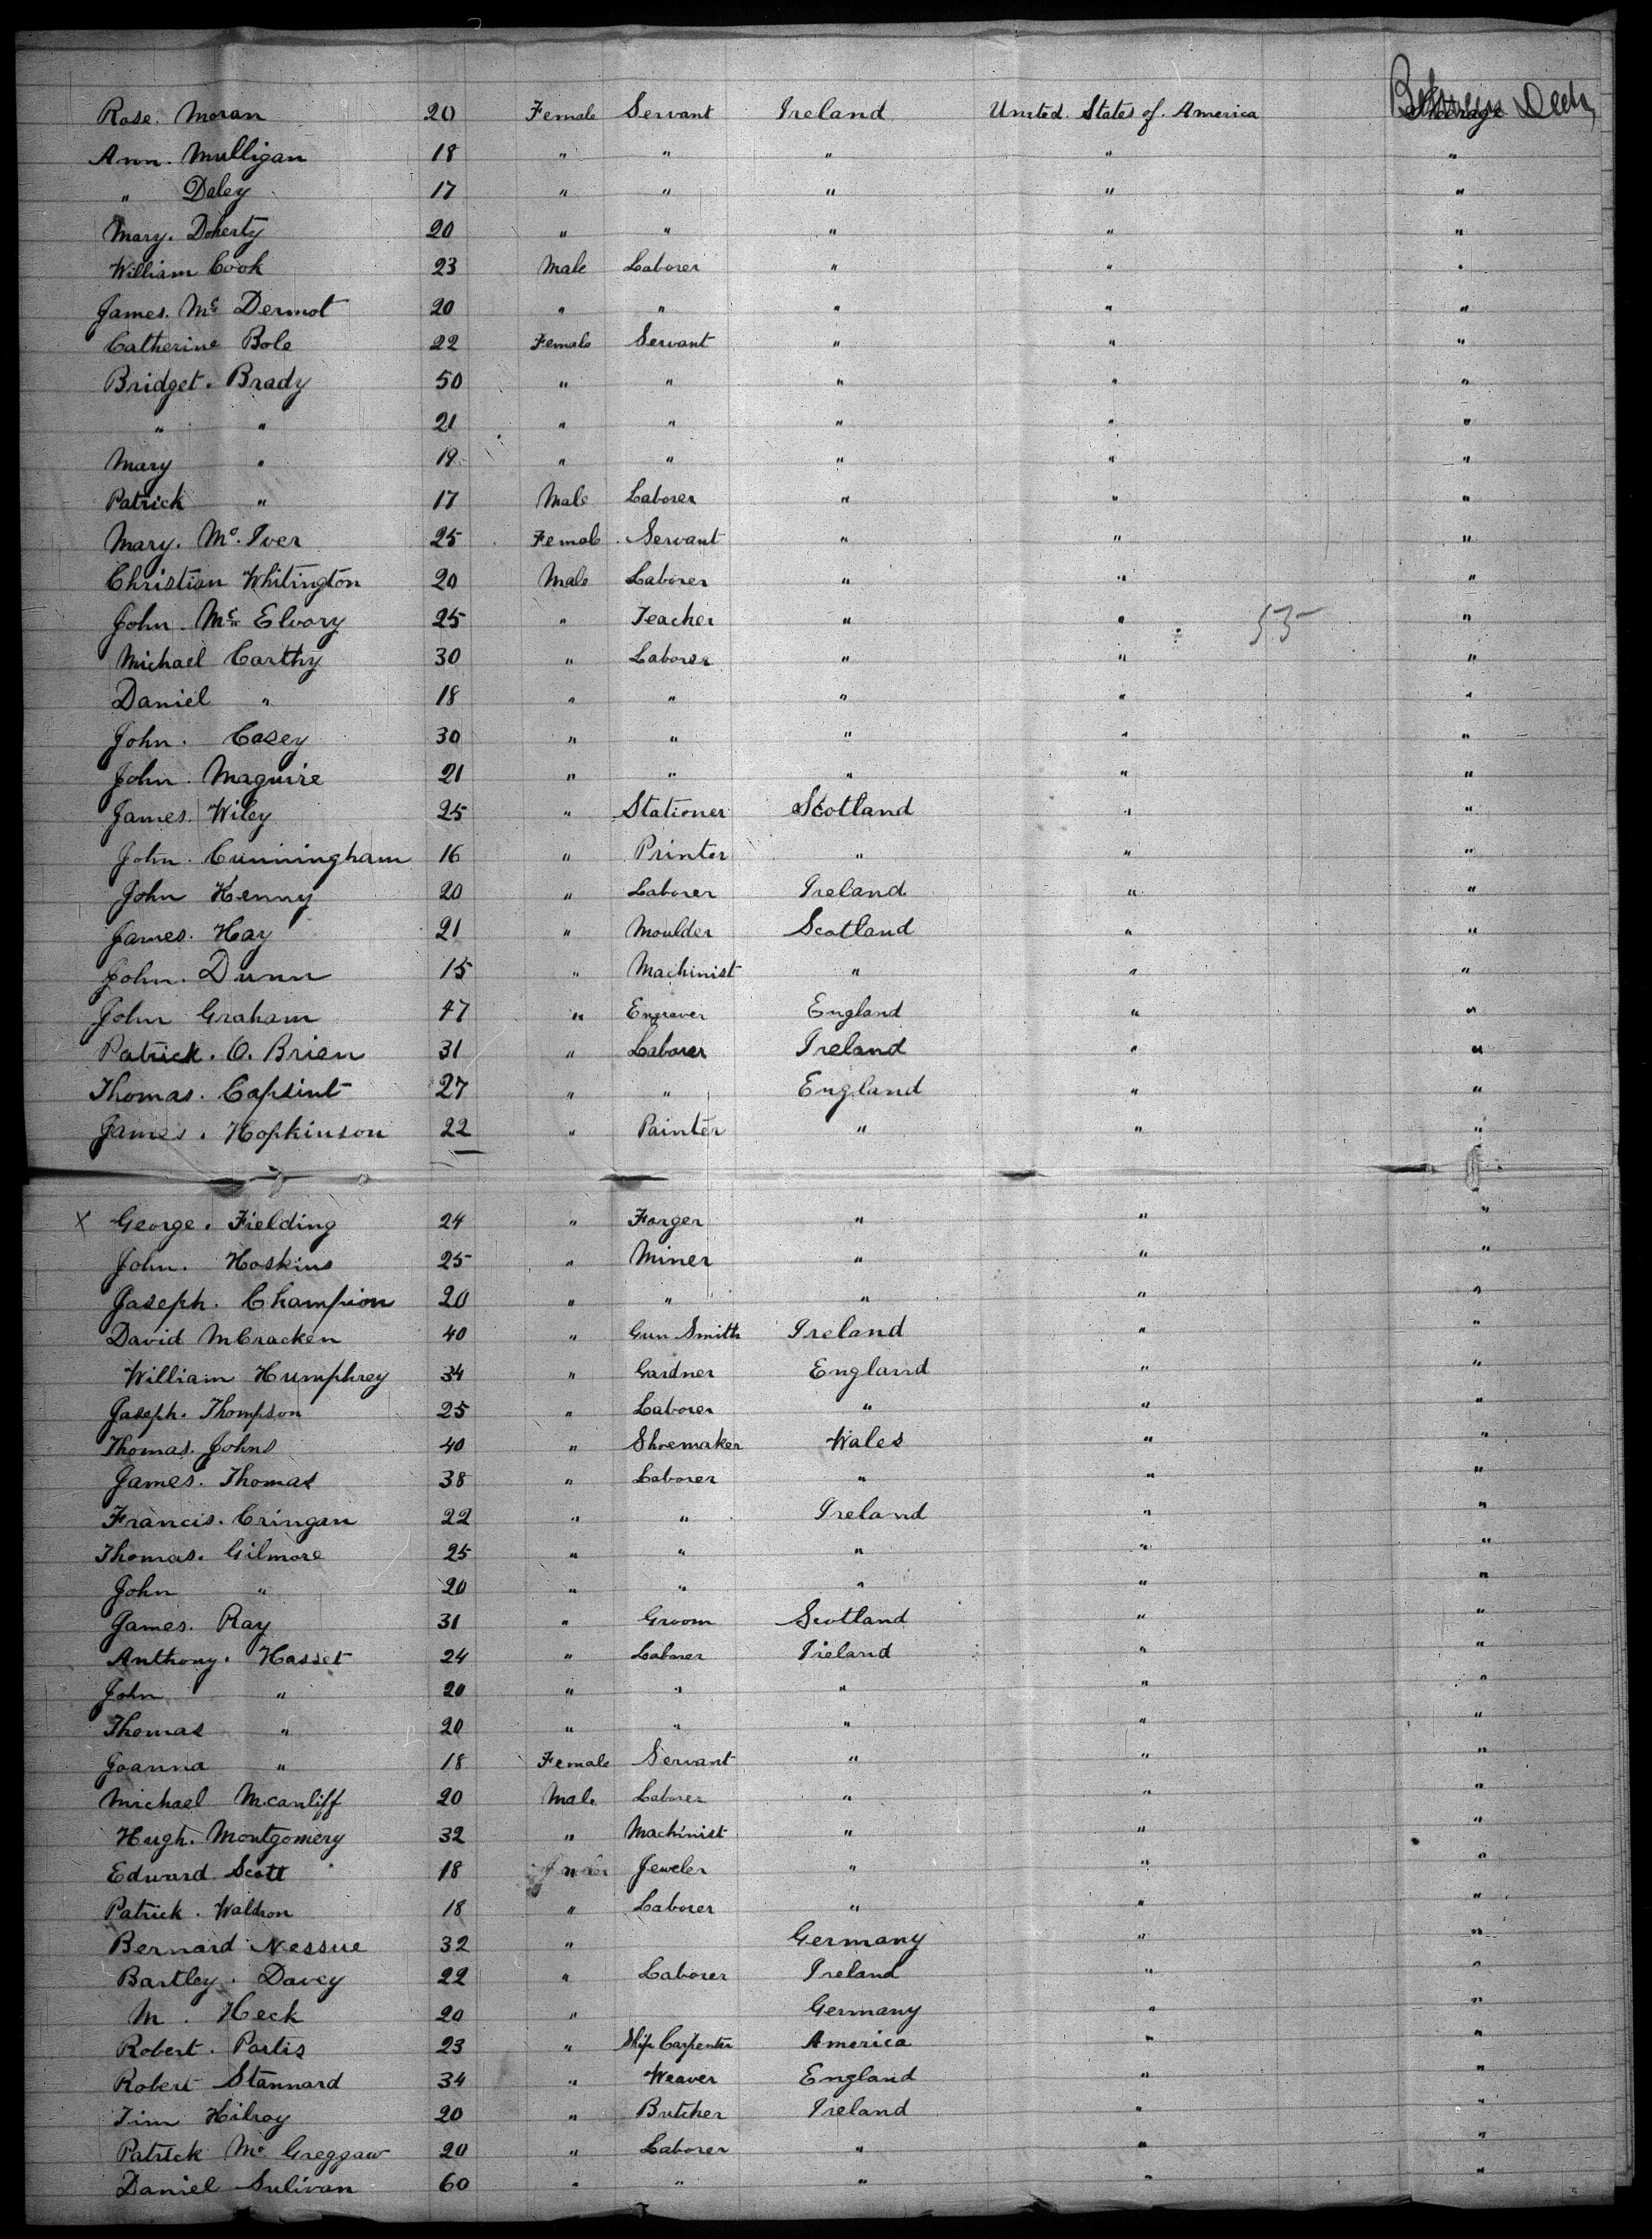 Rose. Moran 20 Female Servant Ireland United States of America Between Deck
Ann. Mulligan 18 " " " " "
" Daley 17 " " " " "
Mary. Doherty 20 " " " " "
William Cook 23 Male Laborer " " "
James. Mc Dermot 20 " " " " "
Catherine Bole 22 Female Servant " " "
Bridget. Brady 50 " " " " "
" " 21 " " " " "
Mary " 19 " " " " "
Patrick " 17 Male Laborer " " "
Mary. Mc. Iver 25 Female Servant " " "
Christian Whitington 20 Male Laborer " " "
John. Mc Elvory 25 " Teacher " " 53 "
Michael Carthy 30 " Laborer " " "
Daniel " 18 " " " " "
John. Casey 30 " " " " "
John. Maguire 21 " " " " "
James. Wiley 25 " Stationer Scotland " "
John. Cunningham 16 " Printer " " "
John Kenny 20 " Laborer Ireland " "
James. Hay 21 " Moulder Scotland " "
John. Dunn 15 " Machinist " " "
John Graham 47 " Engraver England " "
Patrick. O. Brien 31 " Laborer Ireland " "
Thomas. Capsint 27 " " England " "
James. Hopkinson 22 " Painter " " "
X George. Fielding 24 " Forger " " "
John. Hoskins 25 " Miner " " "
Joseph. Champion 20 " " " " "
David McCracken 40 " Gun Smith Ireland " "
William Humphrey 34 " Gardner England " "
Joseph. Thompson 25 " Laborer " " "
Thomas. Johns 40 " Shoemaker Wales " "
James. Thomas 38 " Laborer " " "
Francis. Cringan 22 " " Ireland " "
Thomas. Gilmore 25 " " " " "
John " 20 " " " " "
James. Ray 31 " Groom Scotland " "
Anthony. Hasset 24 " Laborer Ireland " "
John " 20 " " " " "
Thomas " 20 " " " " "
Joanna " 18 Female Servant " " "
Michael Mcanliff 20 Male Laborer " " "
Hugh. Montgomery 32 " Machinist " " "
Edward Scott 18 " Jeweler " " "
Patrick. Waldron 18 " Laborer " " "
Bernard Nessue 32 " Germany " "
Bartley. Davey 22 " Laborer Ireland " "
M. Heck 20 " Germany " "
Robert. Partis 23 " Ship Carpenter America " "
Robert Stannard 34 " Weaver England " "
Tim Kilroy 20 " Butcher Ireland " "
Patrick Mc Greggaw 20 " Laborer " " "
Daniel Sulivan 60 " " " " "